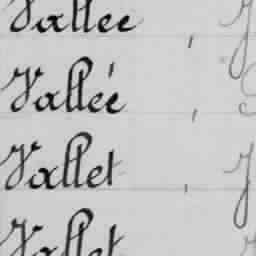 Vallée ,
Vallée ,
Vallet ,
Vallet